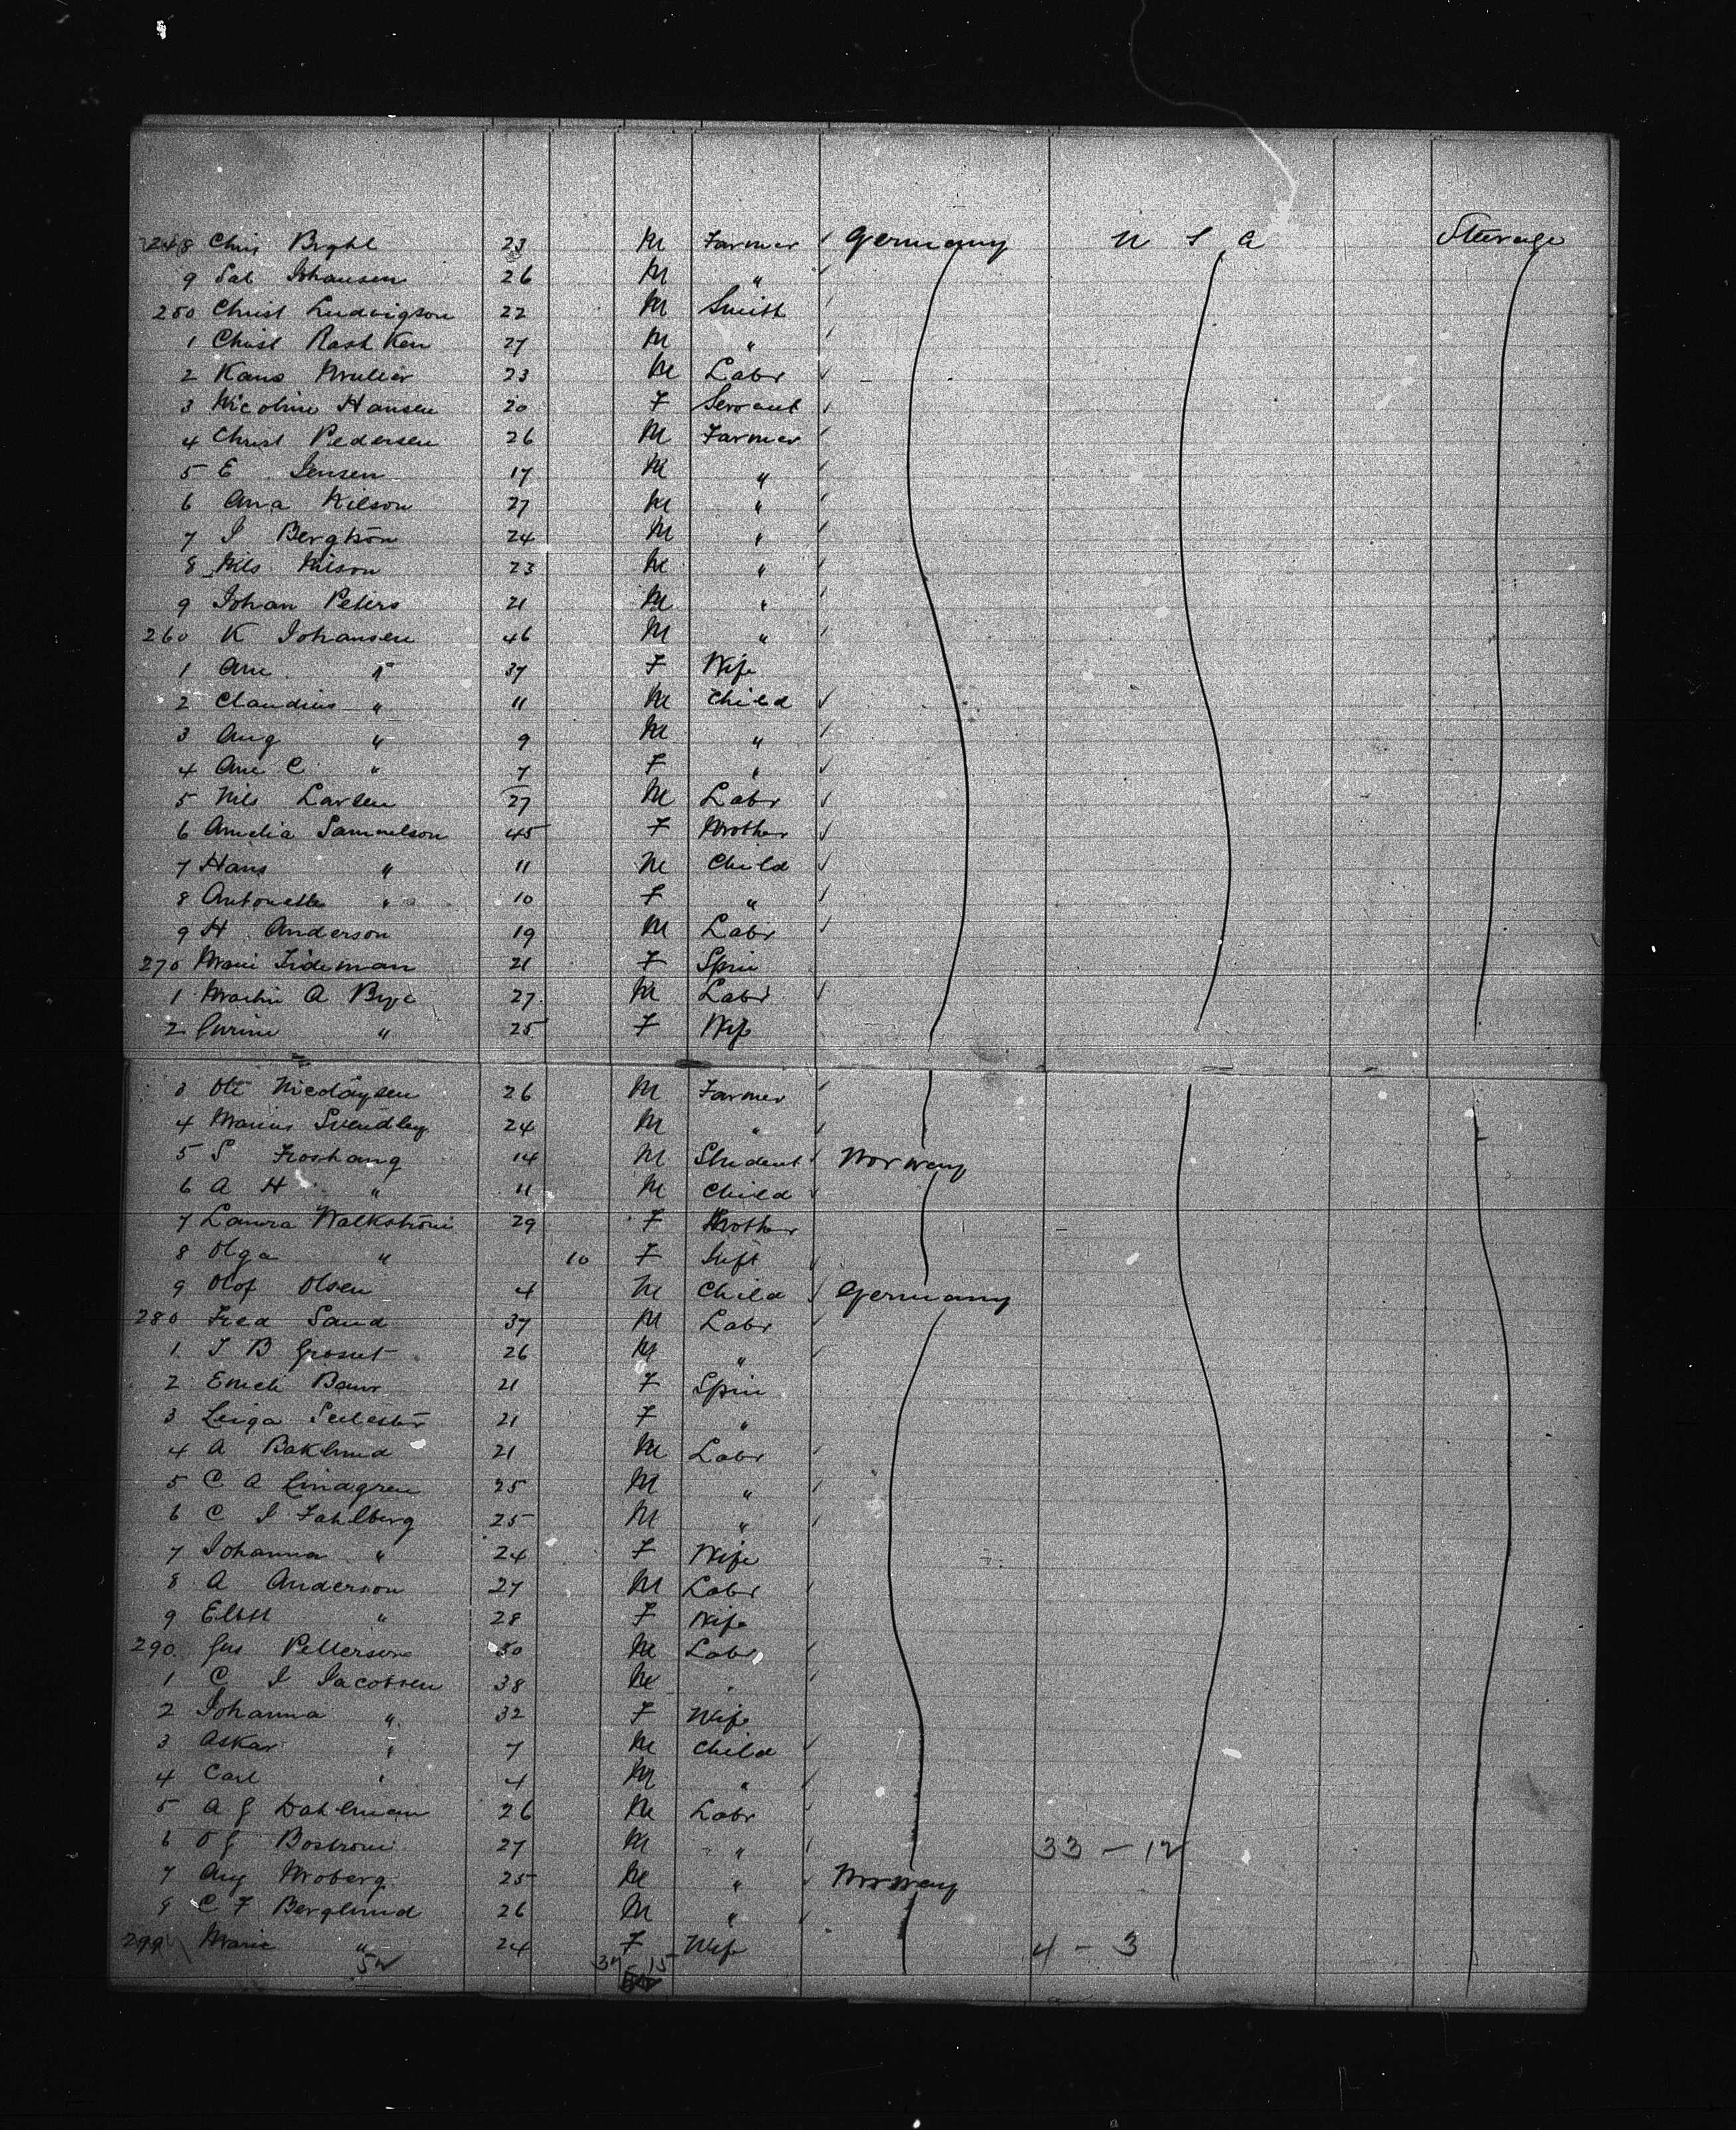 248 Chris Bryhl 23 M Farmer ✓ Germany U S A Steerage
9 Sab Johansen 26 M " ✓
250 Christ Ludvigson 22 M Smith ✓
1 Christ Rash Ken 27 M " ✓
2 Kans Muller 23 M Labr ✓
3 Nicoline Hansen 20 F Servant ✓
4 Christ Pedersen 26 M Farmer ✓
5 E Jensen 17 M " ✓
6 Ana Nilson 27 M " ✓
7 J Bergtson 24 M " ✓
8 Nils Nilson 23 M " ✓
9 Johan Peters 21 M " ✓
260 K Johansen 46 M " ✓
1 Ane " 37 F Wife
2 Claudius " 11 M Child ✓
3 Aug " 9 M " ✓
4 Ane C " 7 F " ✓
5 Nils Larsen 27 M Labr ✓
6 Amelia Samuelson 45 F Mother ✓
7 Hans " 11 M Child ✓
8 Antonette " 10 F " ✓
9 H Anderson 19 M Labr ✓
270 Marie Tideman 21 F Spin
1 Martin A Bye 27 M Labr ✓
2 " 25 F Wife
3 Ole Nicolaysen 26 M Farmer ✓
4 Marius Svendley 24 M " ✓
5 S Froshaug 14 M Student ✓ Norway
6 A H " 11 M Child ✓
7 Laura Walkström 29 F Mother
8 Olga " 10 F Inft
9 Olof Olsen 4 M Child ✓ Germany
280 Fred Sand 37 M Labr ✓
1 J B Grosnet 26 M " ✓
2 Emch Baur 21 F Spin
3 21 F "
4 A Baklund 21 M Labr ✓
5 C A Lindgren 25 M " ✓
6 C J Fahlberg 25 M " ✓
7 Johanna " 24 F Wife
8 A Anderson 27 M Labr ✓
9 " 28 F Wife
290 Gus Petterson 30 M Labr ✓
1 C J Jacobsen 38 M " ✓
2 Johanna " 32 F Wife
3 Askar " 7 M Child ✓
4 Carl " 4 M " ✓
5 A G Dahlman 26 M Labr ✓
6 O G Bostrom 27 M " ✓ 33 - 12
7 Aug Moberg 25 M " ✓ Norway
8 C F Berglund 26 M " ✓
299 Marie " 24 F Wife 4 - 3
52 37 15